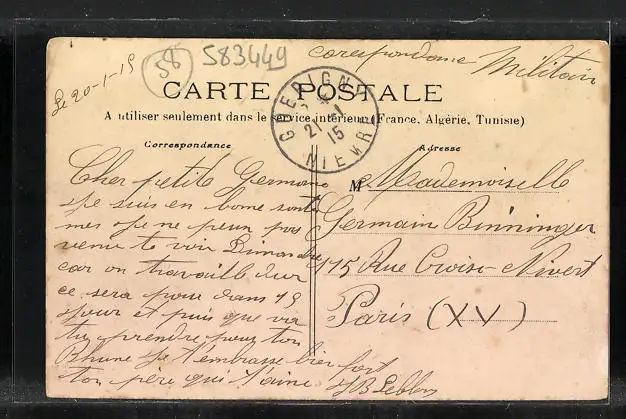 Le 20-1-15
58
583449
corespondance Militair
CARTE POSTALE
A utiliser seulement dans le service intérieur (France, Algérie, Tunisie)
GUERIGNY
21-1
15
NIEVRE
Correspondance
Cher petite Germaine
Je suis en bonne santé
mes Je ne peux pas
venir te voir Dimanche
car on travaille dur
ce sera pour dans 15
jour et puis que va
tu prendre pour ton
Rhume Je t'embrasse bien fort
ton père qui t'aime JB Leblon
Adresse
M Mademoiselle
Germain Binninger
115 Rue Croix-Nivert
Paris (XV)